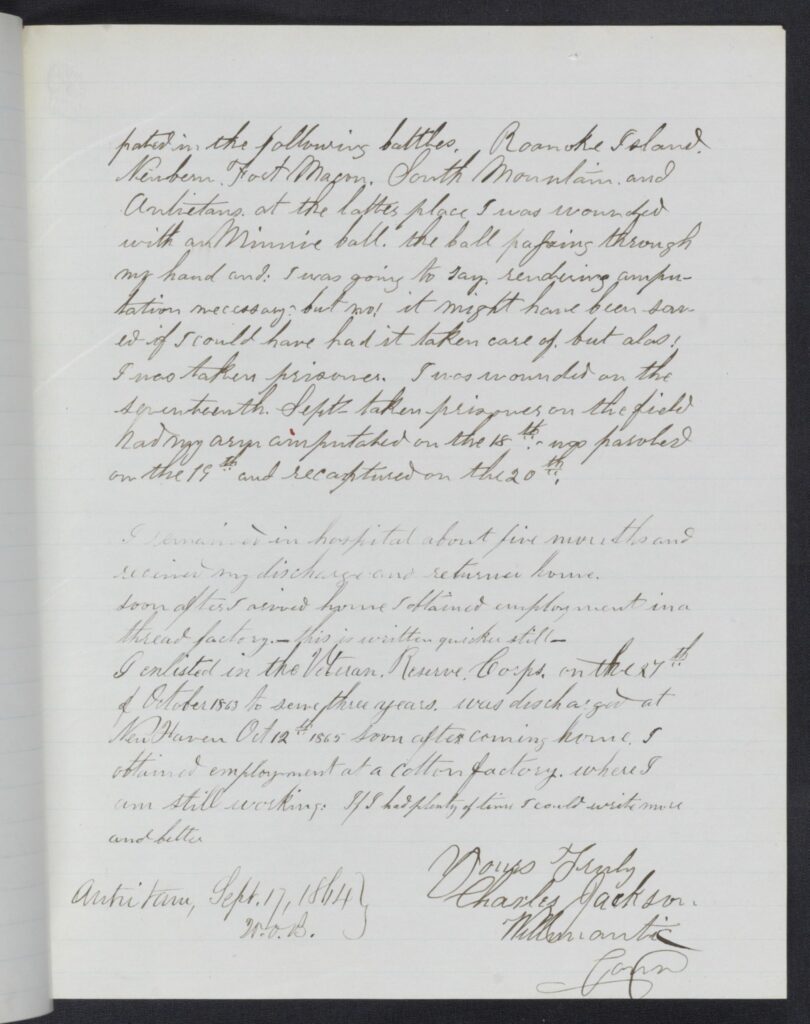 pated in the following battles. Roanoke Island.
Newbern. Fort Macon. South Mountain. and
Antietam. at the latter place I was wounded
with an Minnie ball. the ball passing through
my hand and: I was going to say, rendering ampu-
tation necessary: but no! it might have been sav-
ed if I could have had it taken care of. but alas!
I was taken prisoner. I was wounded on the
seventeenth. Sept- taken prisoner on the field
had my arm amputated on the 18th. was paroled
on the 19th and recaptured on the 20th.
I remained in hospital about five months and
recieved my discharge and returned home.
soon after I arived home I obtained employment in a
thread factory. — this is written quicker still —
I enlisted in the Veteran. Reserve. Corps. on the 27th
of October 1863 to serve three years. was discharged at
New Haven Oct 12th 1865 soon after coming home. I
obtained employment at a cotton factory. where I
am still working: If I had plenty of time I could write more
and better
Yours Truly
Charles Jackson.
Willimantic
Conn
Antietam, Sept. 17, 1864}
W.O.B.